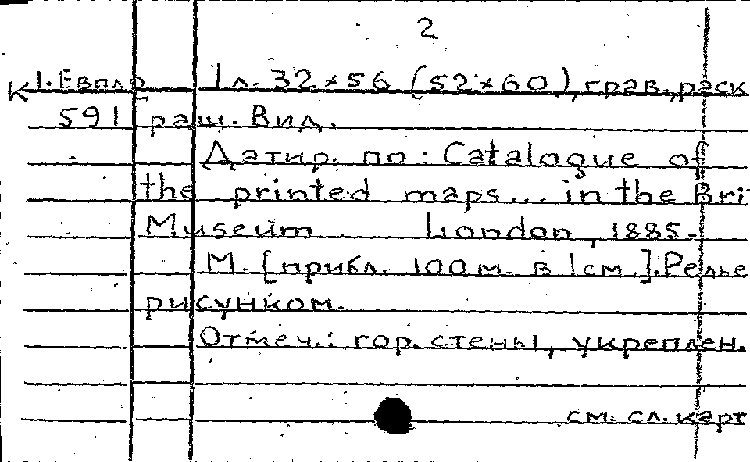 2
К 1. Евпло 1 л. 32×56 (52×60), грав., раск
591 раш. Вид.
Датир. по: Catalogue of
the printed maps... in the Bri
Museum. London, 1885.
М. [прибл. 100 м в 1 см.]. Релье
рисунком.
Отмеч.: гор. стены, укреплен.
см. сл. карт